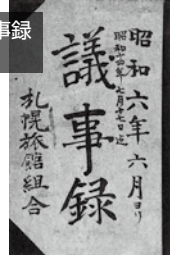 事録
昭和六年六月ヨリ
昭和十四年七月十七日迄
議事録
札幌旅館組合